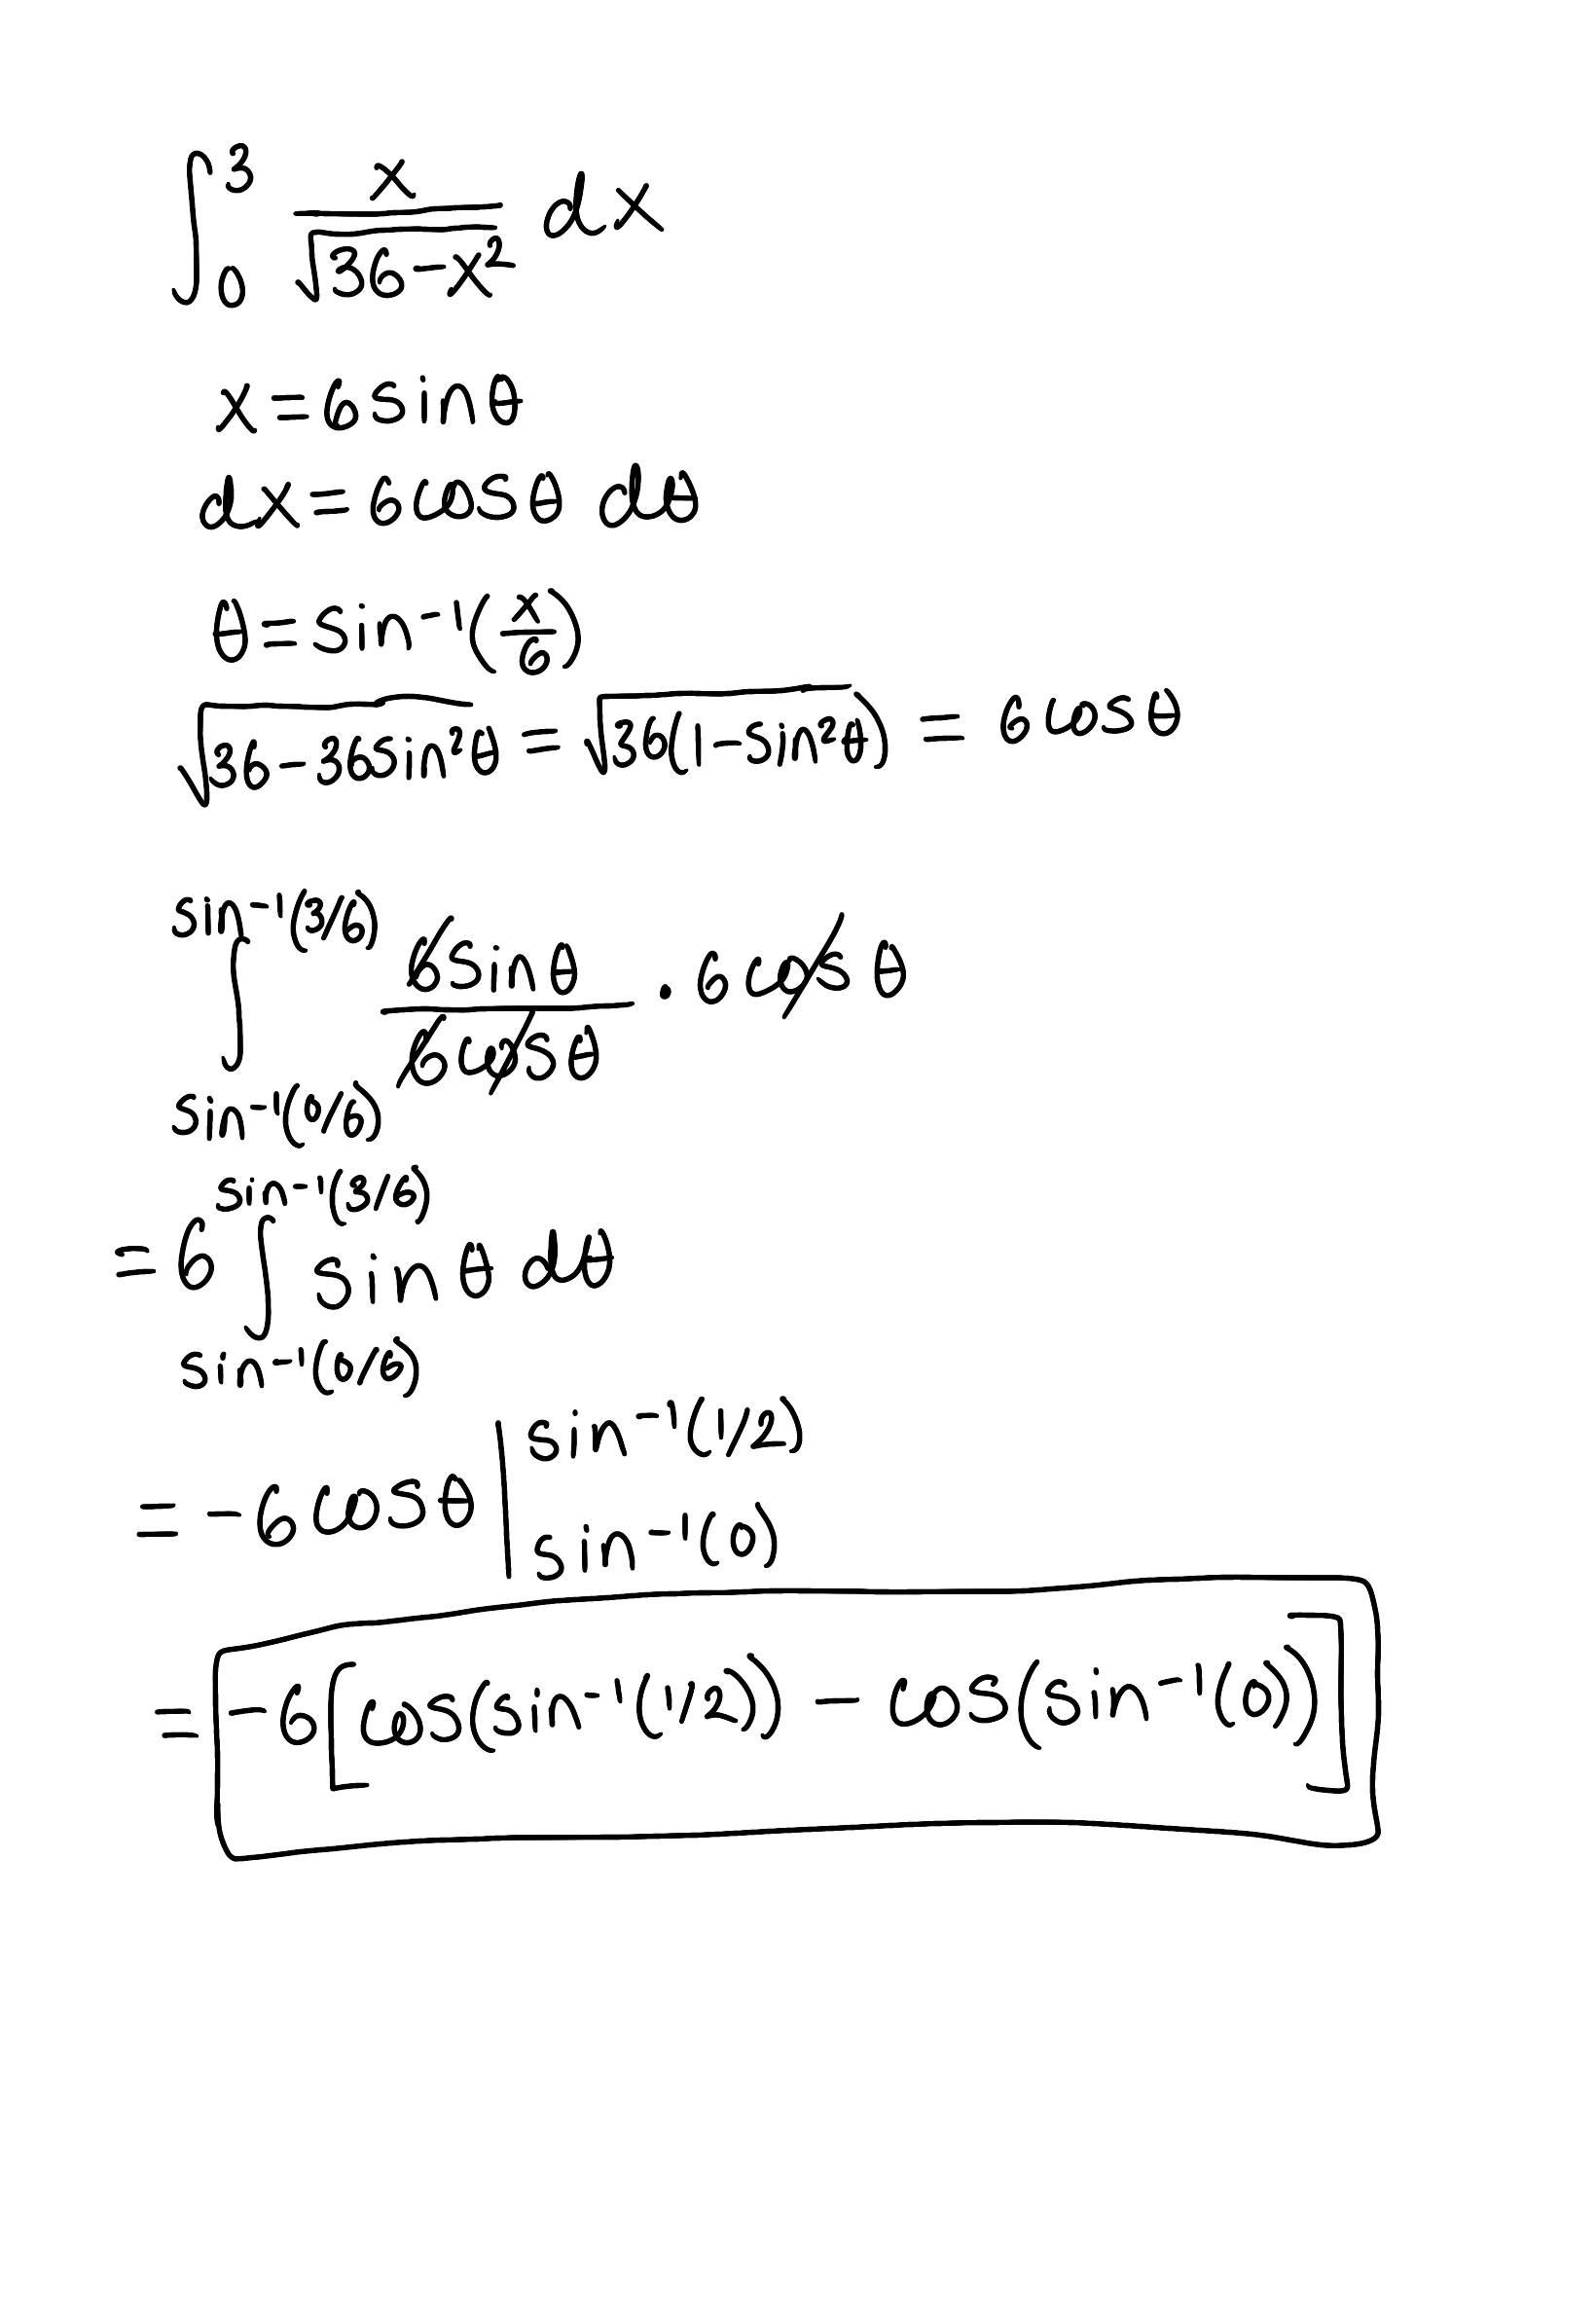 ∫₀³ x/√(36-x²) dx
x = 6 sin θ
dx = 6 cos θ dθ
θ = sin⁻¹(x/6)
√(36-36sin²θ) = √(36(1-sin²θ)) = 6 cos θ
∫_{sin⁻¹(0/6)}^{sin⁻¹(3/6)} (6 sin θ)/(6 cos θ) · 6 cos θ
= 6 ∫_{sin⁻¹(0/6)}^{sin⁻¹(3/6)} sin θ dθ
= -6 cos θ |_{sin⁻¹(0)}^{sin⁻¹(1/2)}
= -6[cos(sin⁻¹(1/2)) - cos(sin⁻¹(0))]